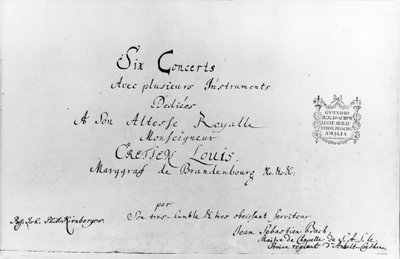 Six Concerts
Avec plusieurs Instruments.
Dediées
A Son Altesse Royalle
Monseigneur
Marggraf de Brandenbourg
par
Son tres-humble & tres obeissant serviteur
Jean Sebastien Bach,
Maitre de Chapelle de S. A. S. le
Prince regnant d'Anhalt-Coethen.
GYMNASIO
AMALIA